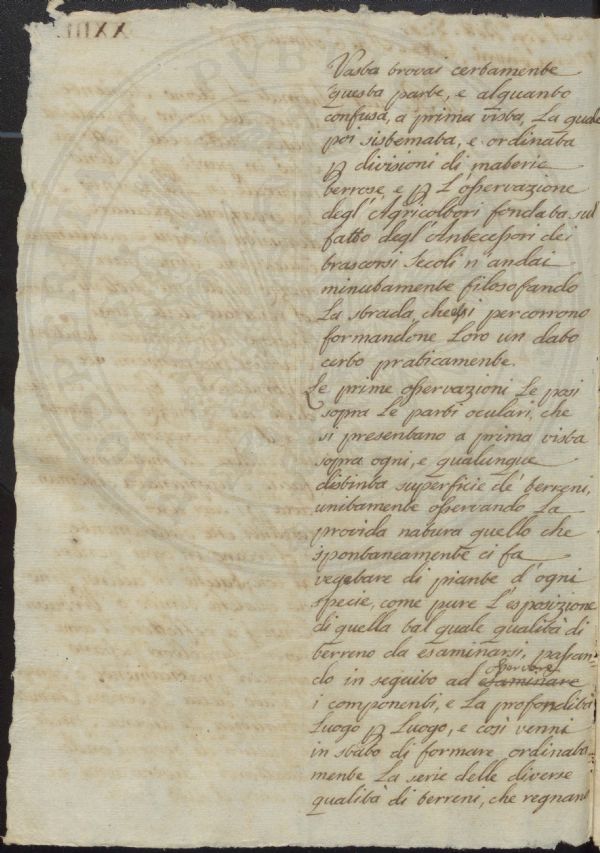 Vasta trovai certamente
questa parte, e alquanto
confusa, a prima vista, La quale
poi sistemata, e ordinata
ꝑ divisioni di materie
terrose, e ꝑ L'osservazione
degl'Agricoltori fondata sul
fatto degl'Antecessori dei
trascorsi Secoli n'andai
minutamente filosofando
La strada, che si percorrono
formandone Loro un dato
certo praticamente.
Le prime osservazioni Le posi
sopra Le parti oculari, che
si presentano a prima vista
sopra ogni, e qualunque
distinta superficie de' terreni,
unitamente osservando La
provida natura quello che
spontaneamente ci fa
vegetare di piante d'ogni
specie, come pure L'esposizione
di quella tal quale qualità di
terreno da esaminarsi, passan-
do in seguito ad osservare
esaminare
i componenti, e La profondità
Luogo ꝑ Luogo, e così venni
in stato di formare ordinata-
mente La serie delle diverse
qualità di terreni, che regnano